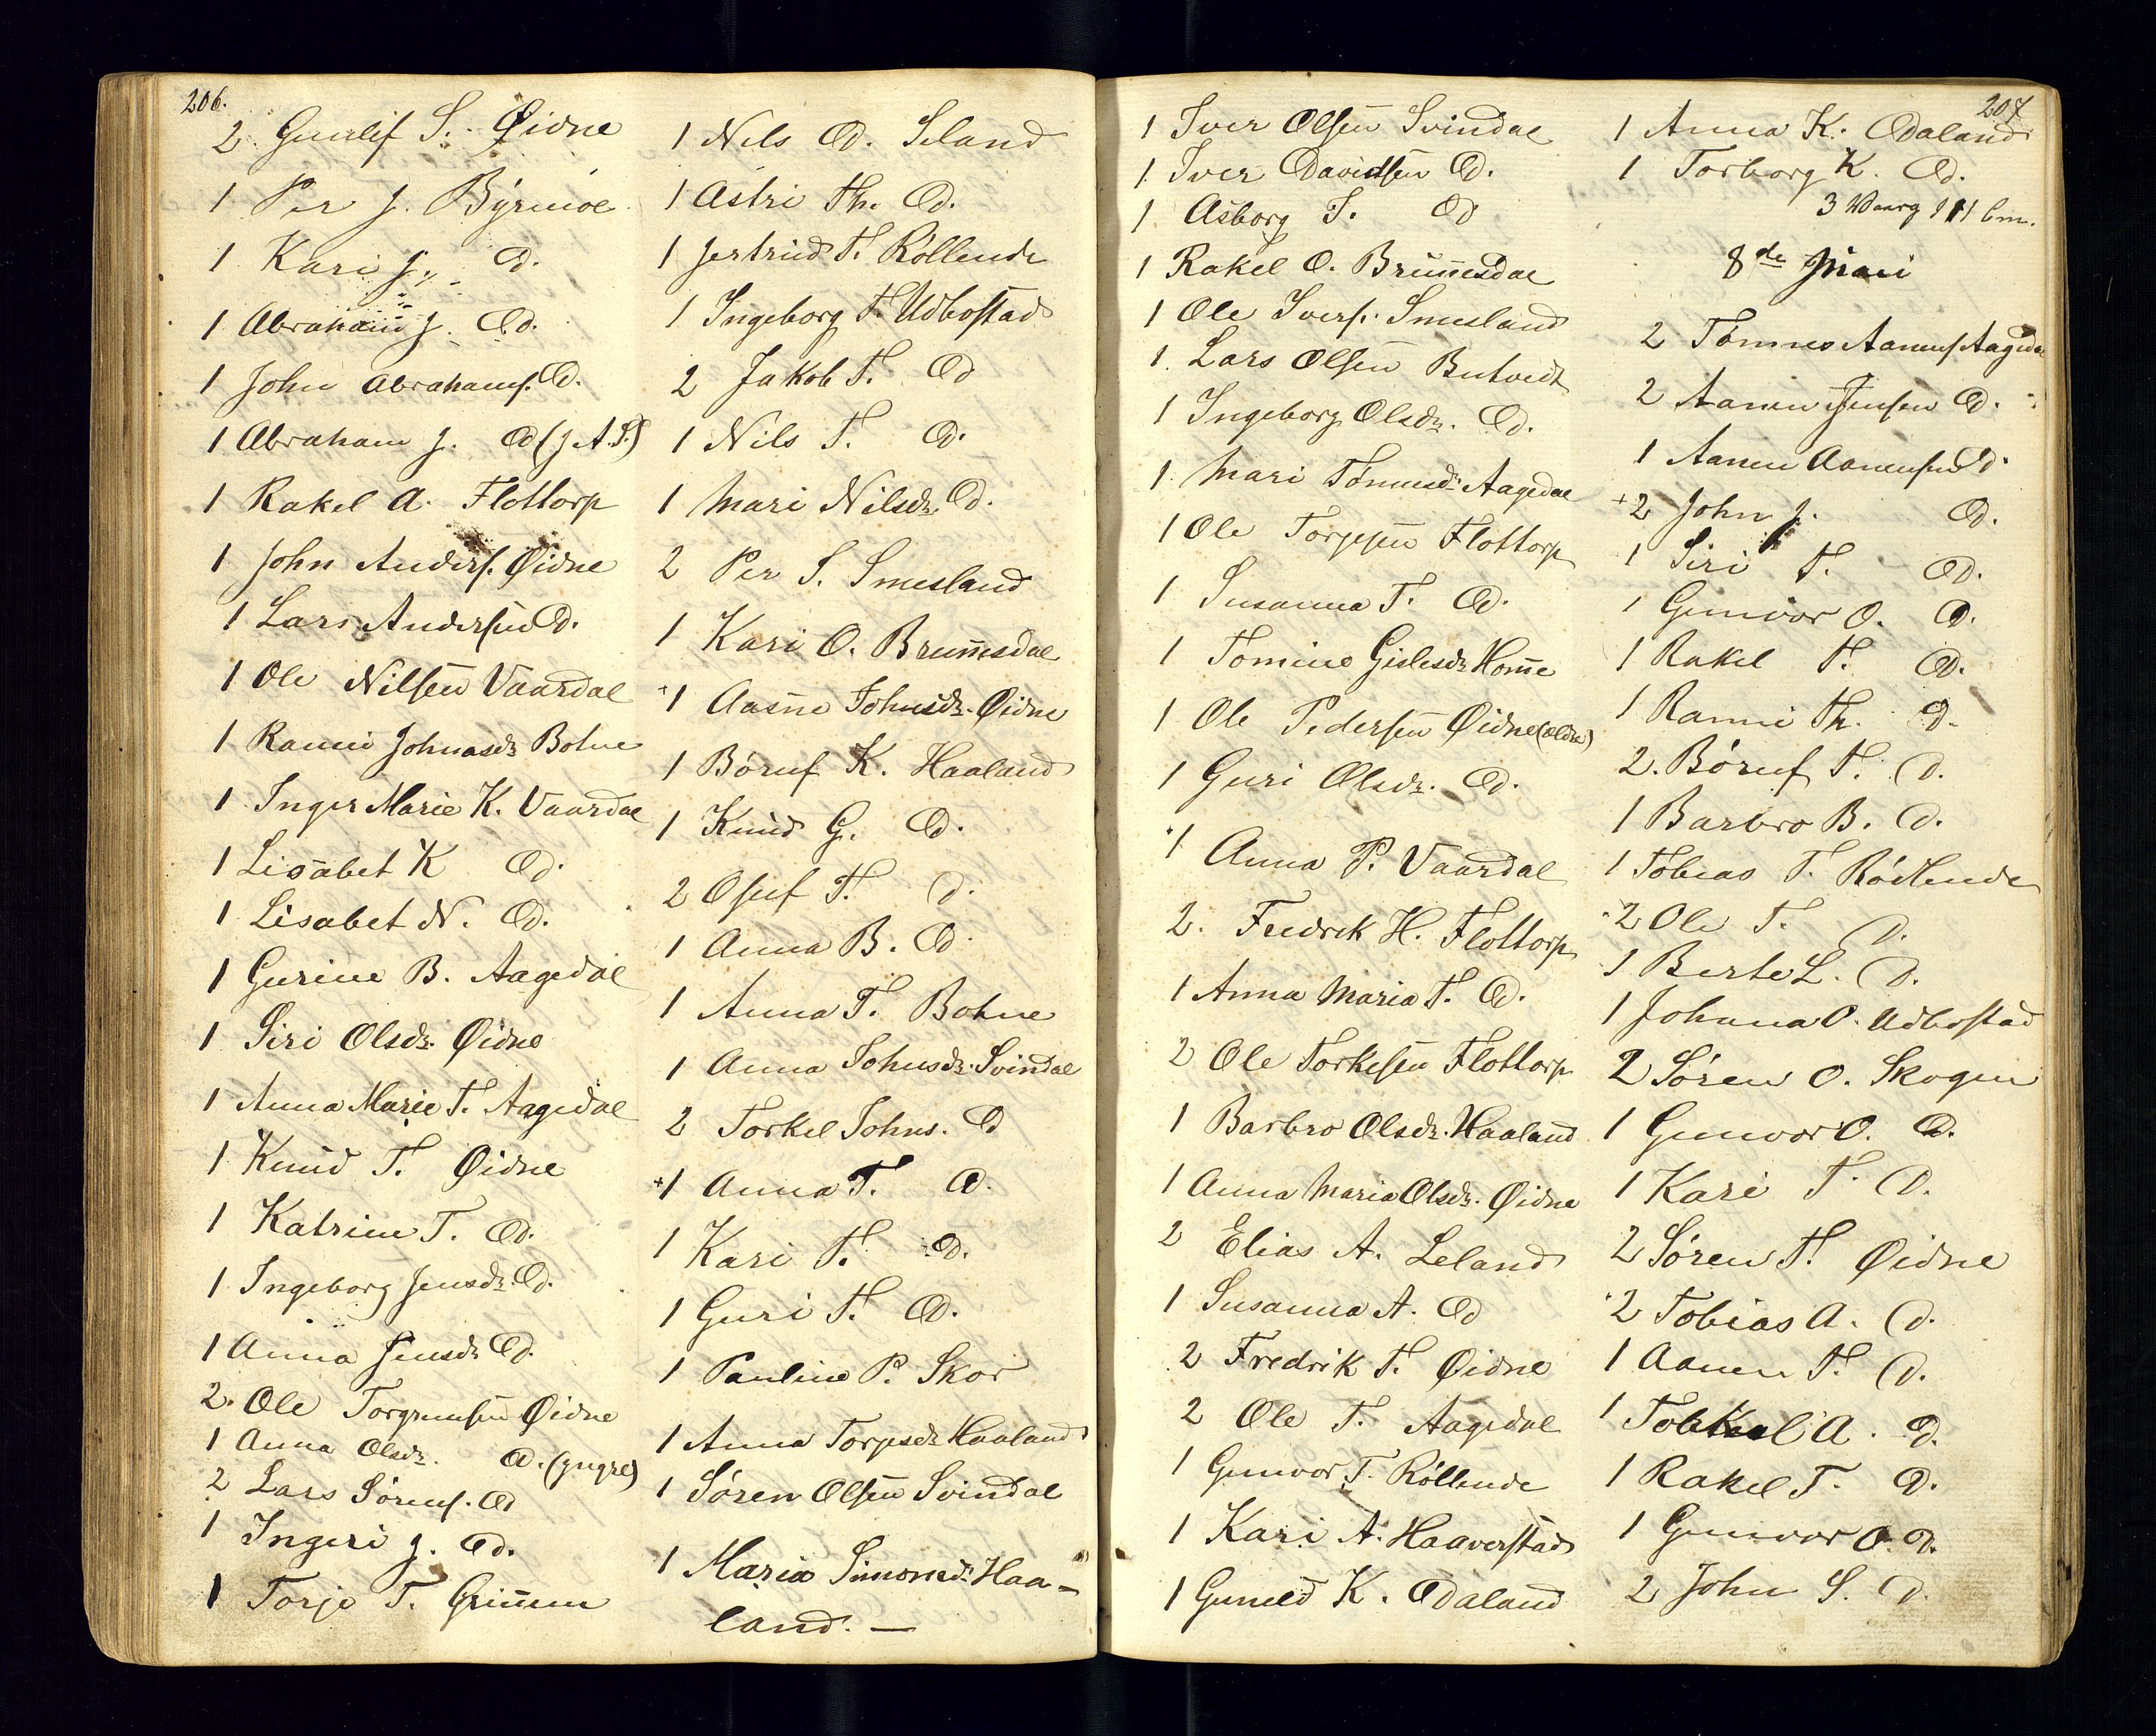 206.
2. Gunlif S. Øidne
1 Per J. Byrmoe
1 Kari J. Od.
1 Abraham J. Od.
1 John Abrahams. Od.
1 Abraham J. Od (J.A.S.)
1 Rakel A. Flottorp
1 John Anders. Øidne
1 Lars Andersen Od.
1 Ole Nilsen Vaardal
1 Ranni Johnasdr Bohne
1 Inger Marie K. Vaardal
1 Lisabet K Od.
1 Lisabet N. Od.
1 Gurine B. Aagedal
1 Siri Olsdr. Øidne
1 Anna Marie T. Aagedal
1 Knud T. Øidne
1 Katrine T. Od.
1 Ingeborg Jensdr. Od.
1 Anna Jensdr Od.
2. Ole Torgrimsen Øidne
1 Anna Olsdr. Od. (yngre)
2 Lars Sörens. Od
1 Ingeri J. Od.
1 Torje T. Grimem
1 Nils Od. Seland
1 Astri Th. Od.
1 Jertrud T. Röllende
1 Ingeborg T. Udbostad
2 Jakob T. Od
1 Nils T. Od.
1 Mari Nilsdr. Od.
2 Per S. Smesland
1 Kari O. Brunnesdal
+1 Aasne Johnsdr. Øidne
1 Böruf K. Haaland
1 Knud G. Od.
2 Osuf T. Od.
1 Anna B. Od.
1 Anna T. Bohne
1 Anna Johnsdr. Svindal
2 Torkel Johns. Od
+1 Anna T. Od.
1 Kari T. Od.
1 Guri T. Od.
1 Pauline P. Skor
1 Anna Torjesdr Haaland
1 Sören Olsen Svindal
1 Maria Simonsdr. Haa-
land. —
207
1 Iver Olsen Svindal
1 Iver Davidsen Od.
1 Åsborg T. Od
1 Rakel O. Brunnesdal
1 Ole Ivers. Smesland
1. Lars Olsen Butvedt
1 Ingeborg Olsdr. Od.
1 Mari Tönnesdr Aagedal
1 Ole Torjesen Flottorp
1 Susanna T. Od.
1 Tomine Gislesdr Home
1 Ole Pedersen Øidne (ældre)
1 Guri Olsdr. Od.
1 Anna P. Vaardal
2. Fredrek H. Flottorp
1 Anna Maria T. Od.
2 Ole Torkelsen Flottorp
1 Barbro Olsdr. Haaland
1 Anna Maria Olsdr. Øidne
2 Elias A. Leland
1 Susanna A. Od
2 Fredrik T. Øidne
2 Ole T. Aagedal
1 Gunvor T. Röllende
1 Kari A. Haaverstad
1 Guneld K. Odaland
1 Anna K. Odaland
1 Torborg K. Od.
8de Juni
2 Tönnes Aanens Aagedal
2 Aanen Jensen Od.
1 Aanen Aanensen Od.
+2 John J. Od.
1 Siri T. Od.
1 Gunvor O. Od.
1 Rakel T. Od.
1 Ranni Th. Od.
2. Böruf T. Od.
1 Barbro B. Od.
1 Tobias T. Rödlende
2 Ole T. Od.
1 Berte L. Od.
1 Johnna O. Udbostad
2 Sören O. Skogen
1 Gunvor O. Od.
1 Kari T. Od.
2 Sören T. Øidne
2 Tobias A. Od.
1 Aanen T. Od.
1 Torkel A. Od.
1 Rakel T. Od.
1 Gunvor O. Od.
2 John S. Od.